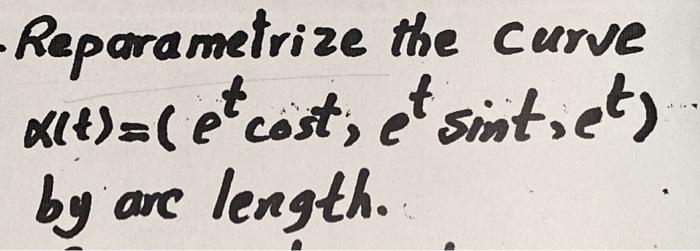 Reparametrize the curve
α(t)=(e^t cost, e^t sint, e^t)
by arc length.